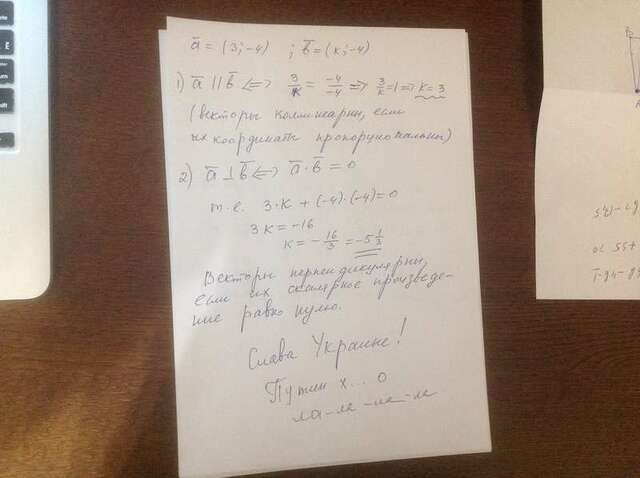 ā = (3; -4) ; b̄ = (k; -4)
1) ā || b̄ <=> 3/k = -4/-4 => 3/k = 1 => k = 3
(векторы коллинеарны, если
их координаты пропорциональны)
2) ā ⊥ b̄ <=> ā · b̄ = 0
т.е. 3·k + (-4)·(-4) = 0
3k = -16
k = -16/3 = -5 1/3
Векторы перпендикулярны,
если их скалярное произведе-
ние равно нулю.
Слава Украине!
Путин х... о
ла-ла-ла-ла